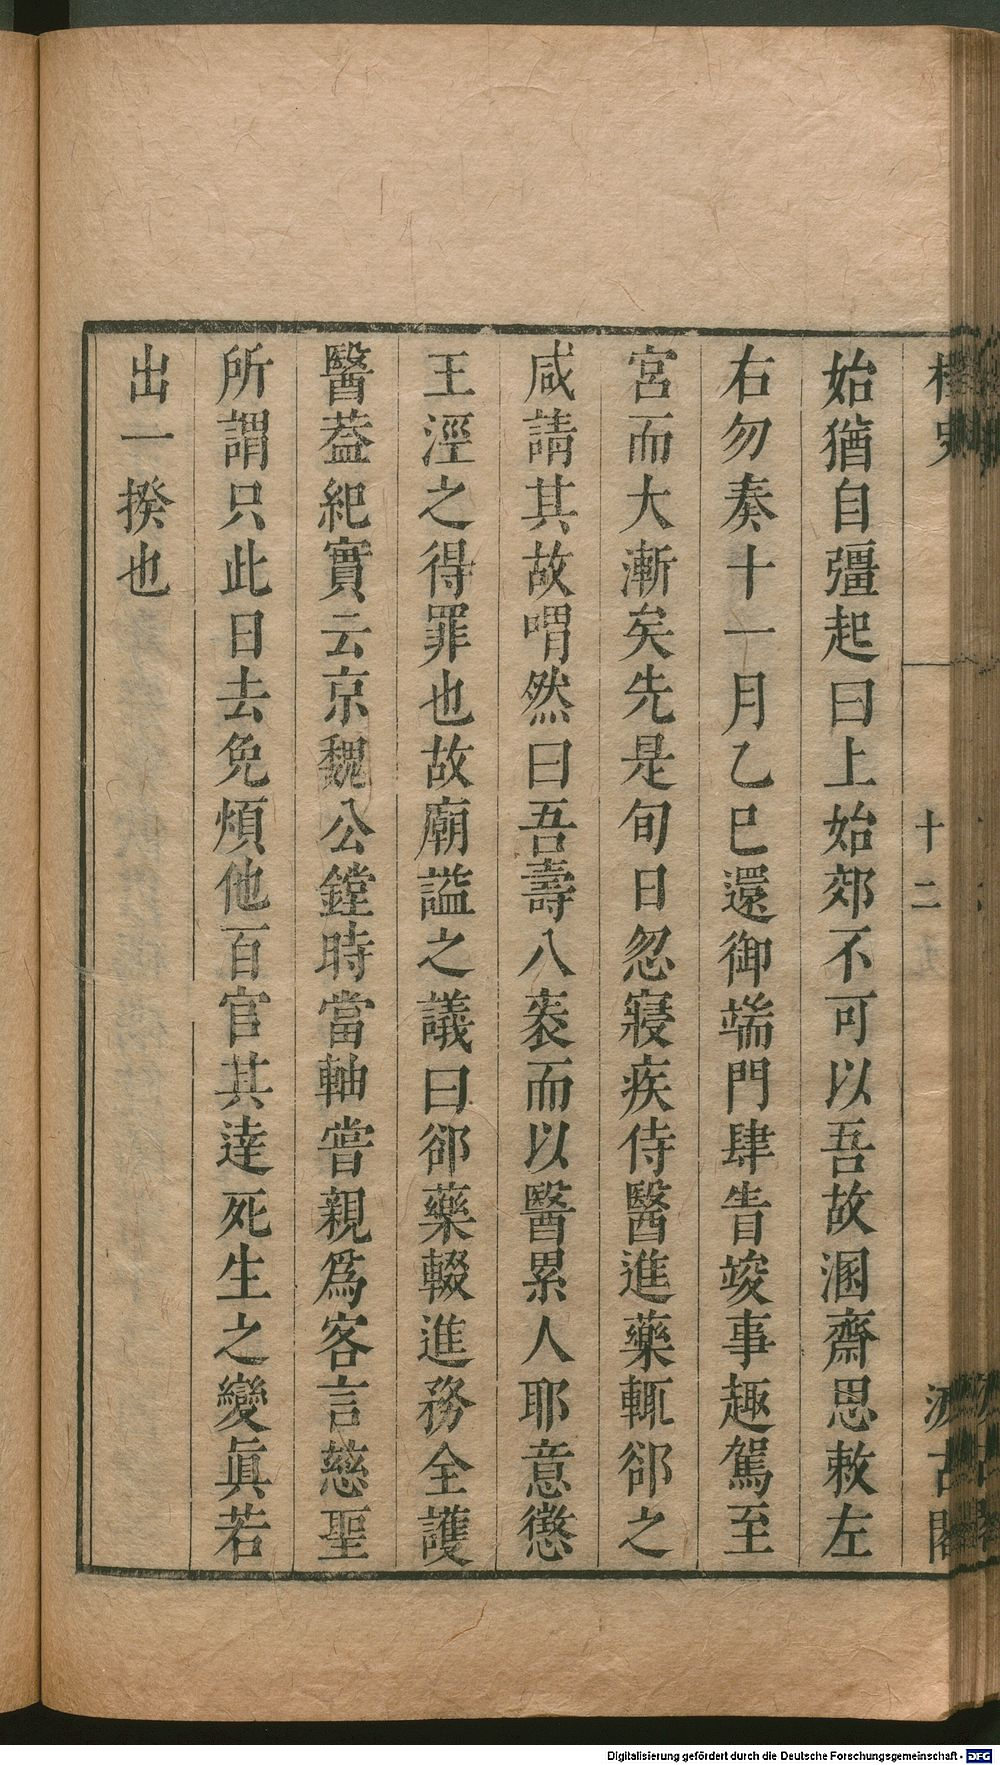 桯史
十二
汲古閣
始猶自彊起曰上始郊不可以吾故溷齋思敕左
右勿奏十一月乙巳還御端門肆眚竣事趣駕至
宮而大漸矣先是旬日忽寢疾侍醫進藥輒郤之
咸請其故喟然曰吾壽八袠而以醫累人耶意懲
王涇之得罪也故廟謚之議曰郤藥輟進務全護
醫葢紀實云京魏公鏜時當軸嘗親爲客言慈聖
所謂只此日去免煩他百官其達死生之變眞若
出一揆也
Digitalisierung gefördert durch die Deutsche Forschungsgemeinschaft - DFG